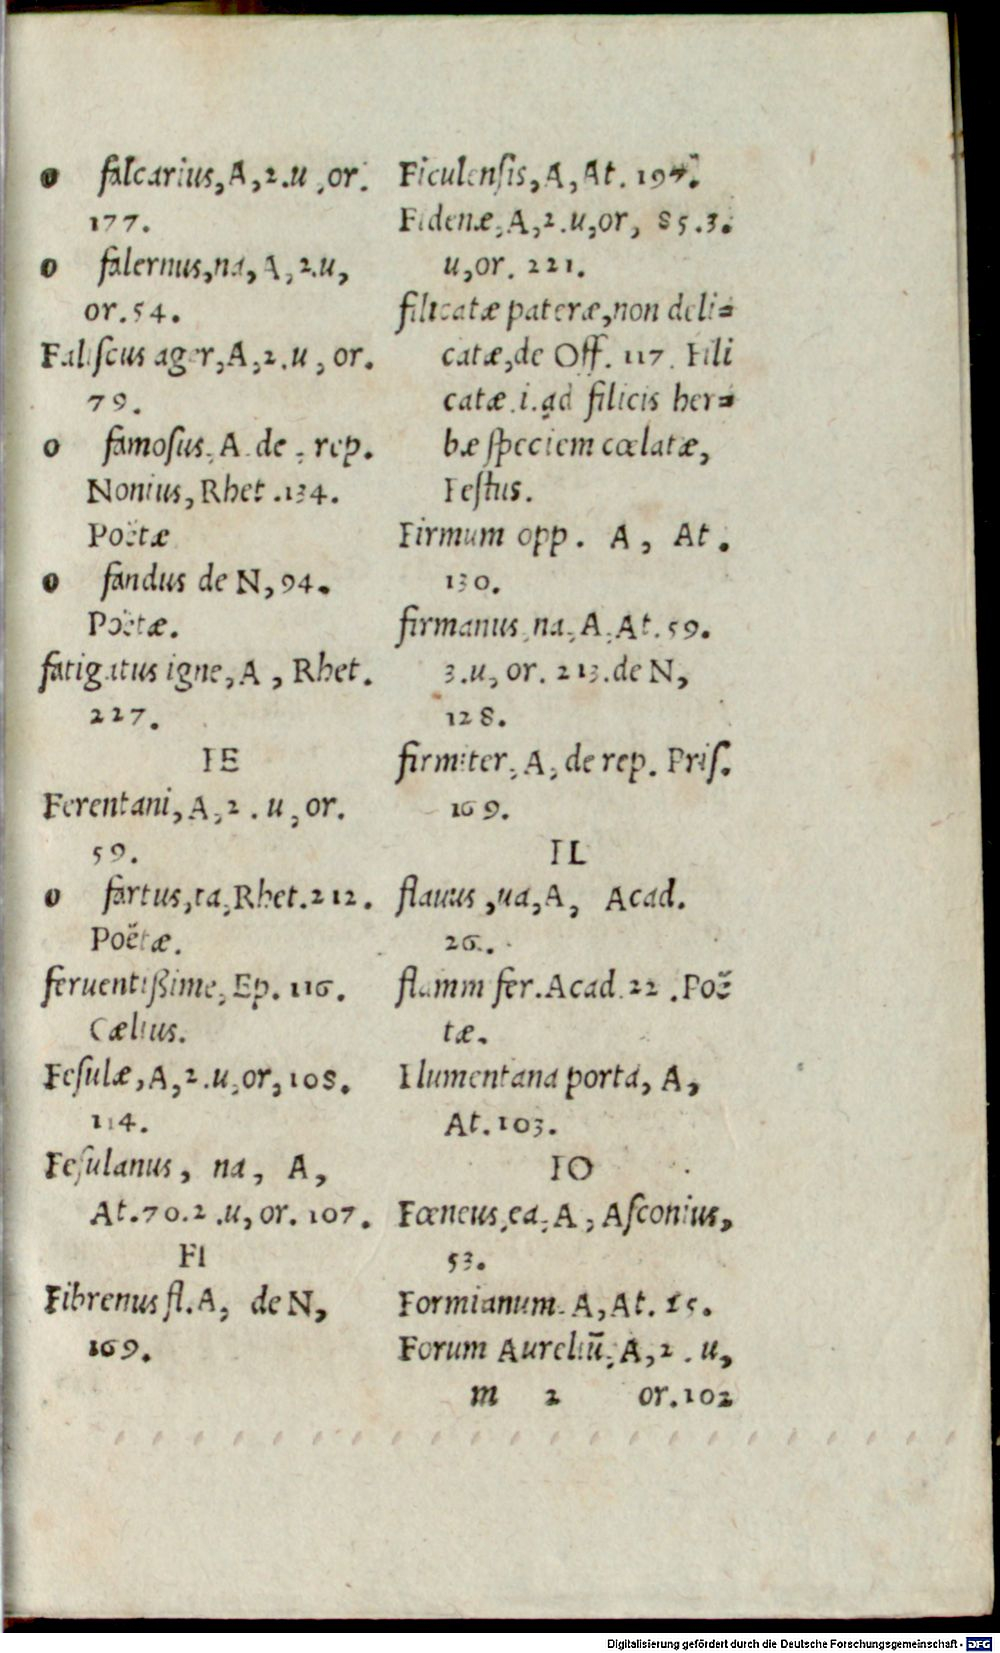 o falcarius, A, 2.u, or.
177.
o falernus, na, A, 2.u,
or. 54.
Faliſcus ager, A, 2.u, or.
79.
o famoſus, A. de. rep.
Nonius, Rhet. 134.
Poëtæ
o fandus de N, 94.
Poëtæ.
fatigatus igne, A, Rhet.
227.
FE
Ferentani, A, 2. u, or.
59.
o fartus, ta, Rhet. 212.
Poëtæ.
feruentißime, Ep. 116.
Cælius.
Feſulæ, A, 2.u, or, 108.
114.
Feſulanus, na, A,
At. 70. 2.u, or. 107.
FI
Fibrenus fl. A, de N,
169.
Ficulenſis, A, At. 197.
Fidenæ, A, 2.u, or, 85. 3.
u, or. 221.
filicatæ pateræ, non deli=
catæ, de Off. 117. Fili
catæ .i. ad filicis her=
bæ ſpeciem cœlatæ,
Feſtus.
Firmum opp. A, At.
130.
firmanus, na, A, At. 59.
3.u, or. 213. de N,
128.
firmiter, A, de rep. Priſ.
169.
FL
flauus, ua, A, Acad.
26.
flamm fer. Acad. 22. Poë
tæ.
Flumentana porta, A,
At. 103.
FO
Fœneus, ea, A, Aſconius,
53.
Formianum. A, At. 15.
Forum Aureliū, A, 2. u,
m 2 or. 102
Digitalisierung gefördert durch die Deutsche Forschungsgemeinschaft - DFG